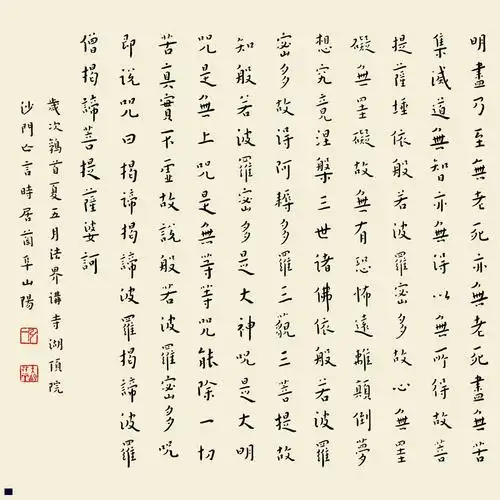 明盡乃至無老死亦無老死盡無苦
集滅道無智亦無得以無所得故菩
提薩埵依般若波羅密多故心無罣
礙無罣礙故無有恐怖遠離顛倒夢
想究竟涅槃三世諸佛依般若波羅
密多故得阿耨多羅三藐三菩提故
知般若波羅密多是大神呪是大明
呪是無上呪是無等等呪能除一切
苦真實不虛故說般若波羅密多呪
即說呪曰揭諦揭諦波羅揭諦波羅
僧揭諦菩提薩婆訶
歲次鶉首夏五月法界講寺湖頂院
沙門亡言時居阜山陽